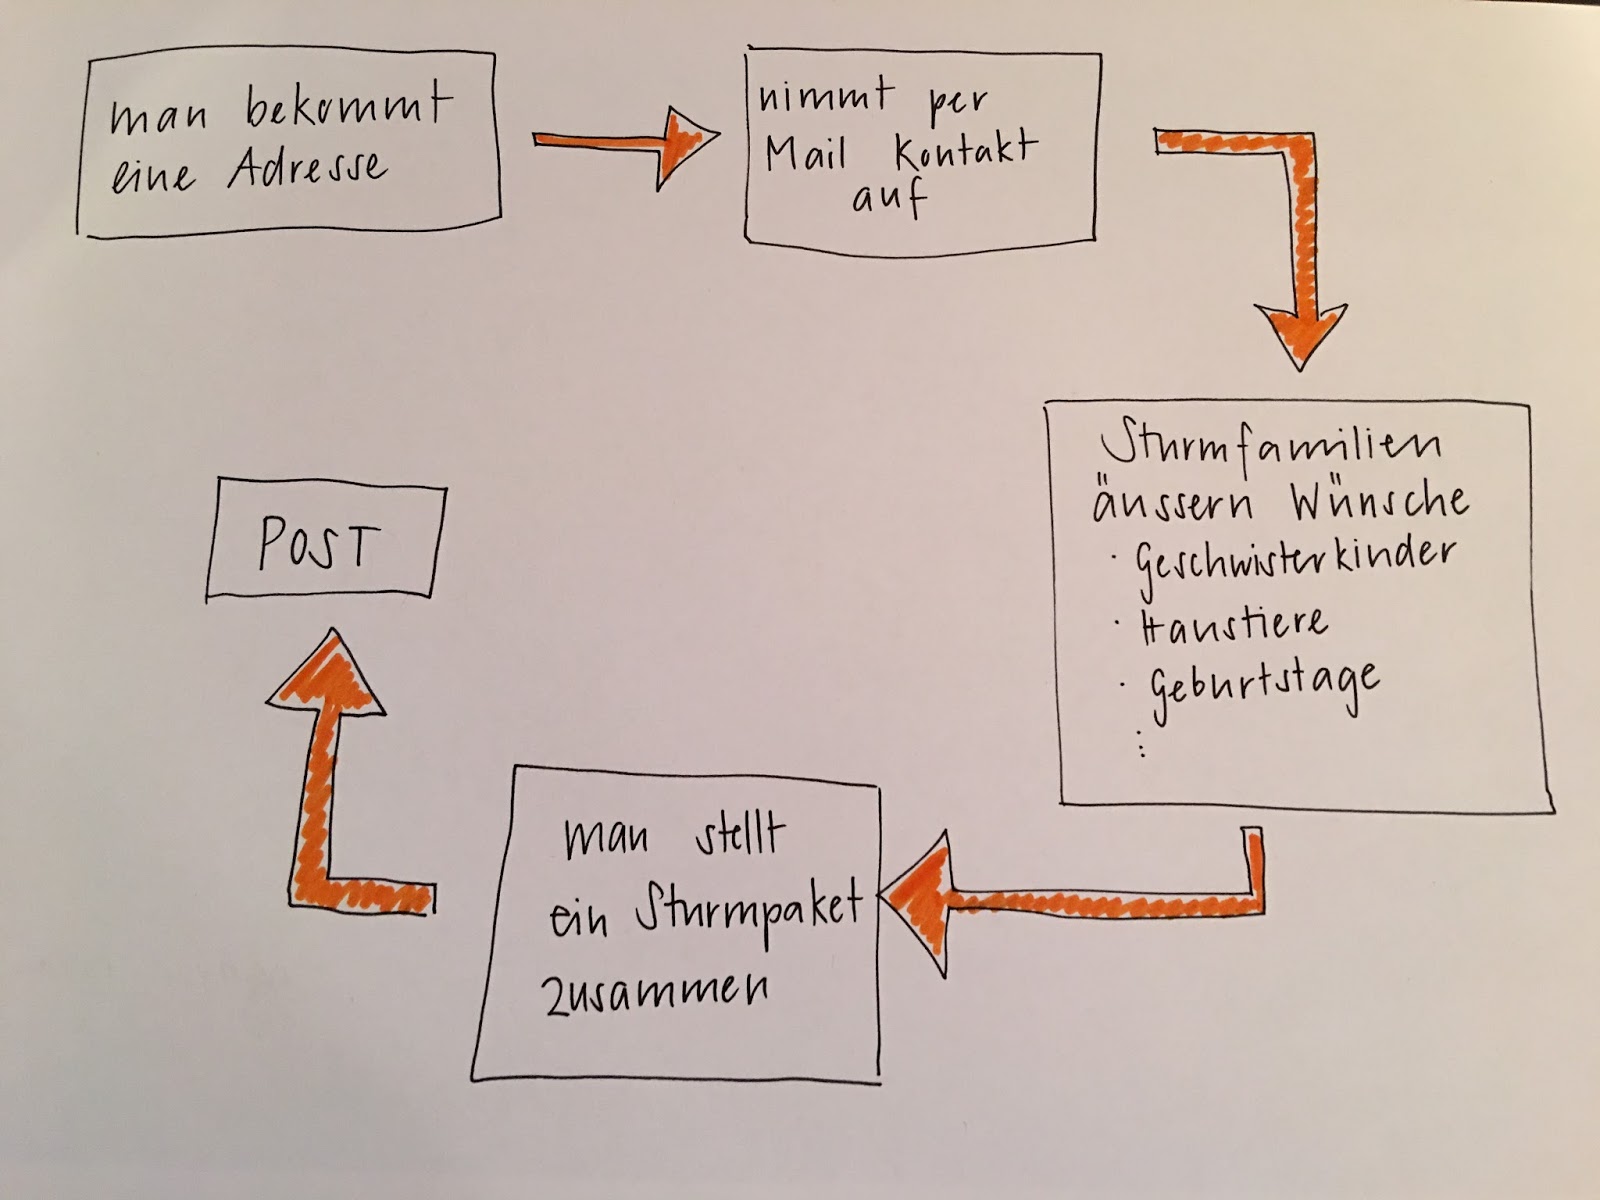 man bekommt
eine Adresse
nimmt per
Mail Kontakt
auf
Sturmfamilien
äussern Wünsche
· Geschwisterkinder
· Haustiere
· Geburtstage
⋮
man stellt
ein Sturmpaket
zusammen
POST